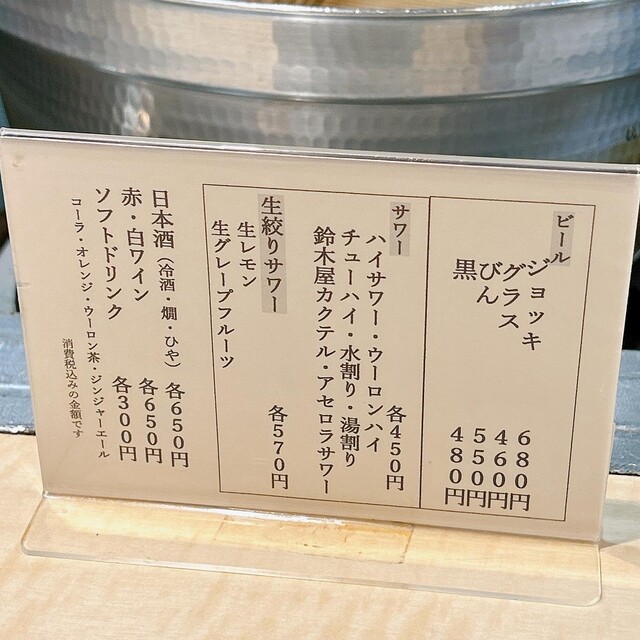 ビール
ジョッキ 680円
グラス 460円
びん 550円
黒 480円
サワー 各450円
ハイサワー・ウーロンハイ
チューハイ・水割り・湯割り
鈴木屋カクテル・アセロラサワー
生絞りサワー 各570円
生レモン
生グレープフルーツ
日本酒(冷酒・燗・ひや) 各650円
赤・白ワイン 各650円
ソフトドリンク 各300円
コーラ・オレンジ・ウーロン茶・ジンジャーエール
消費税込みの金額です